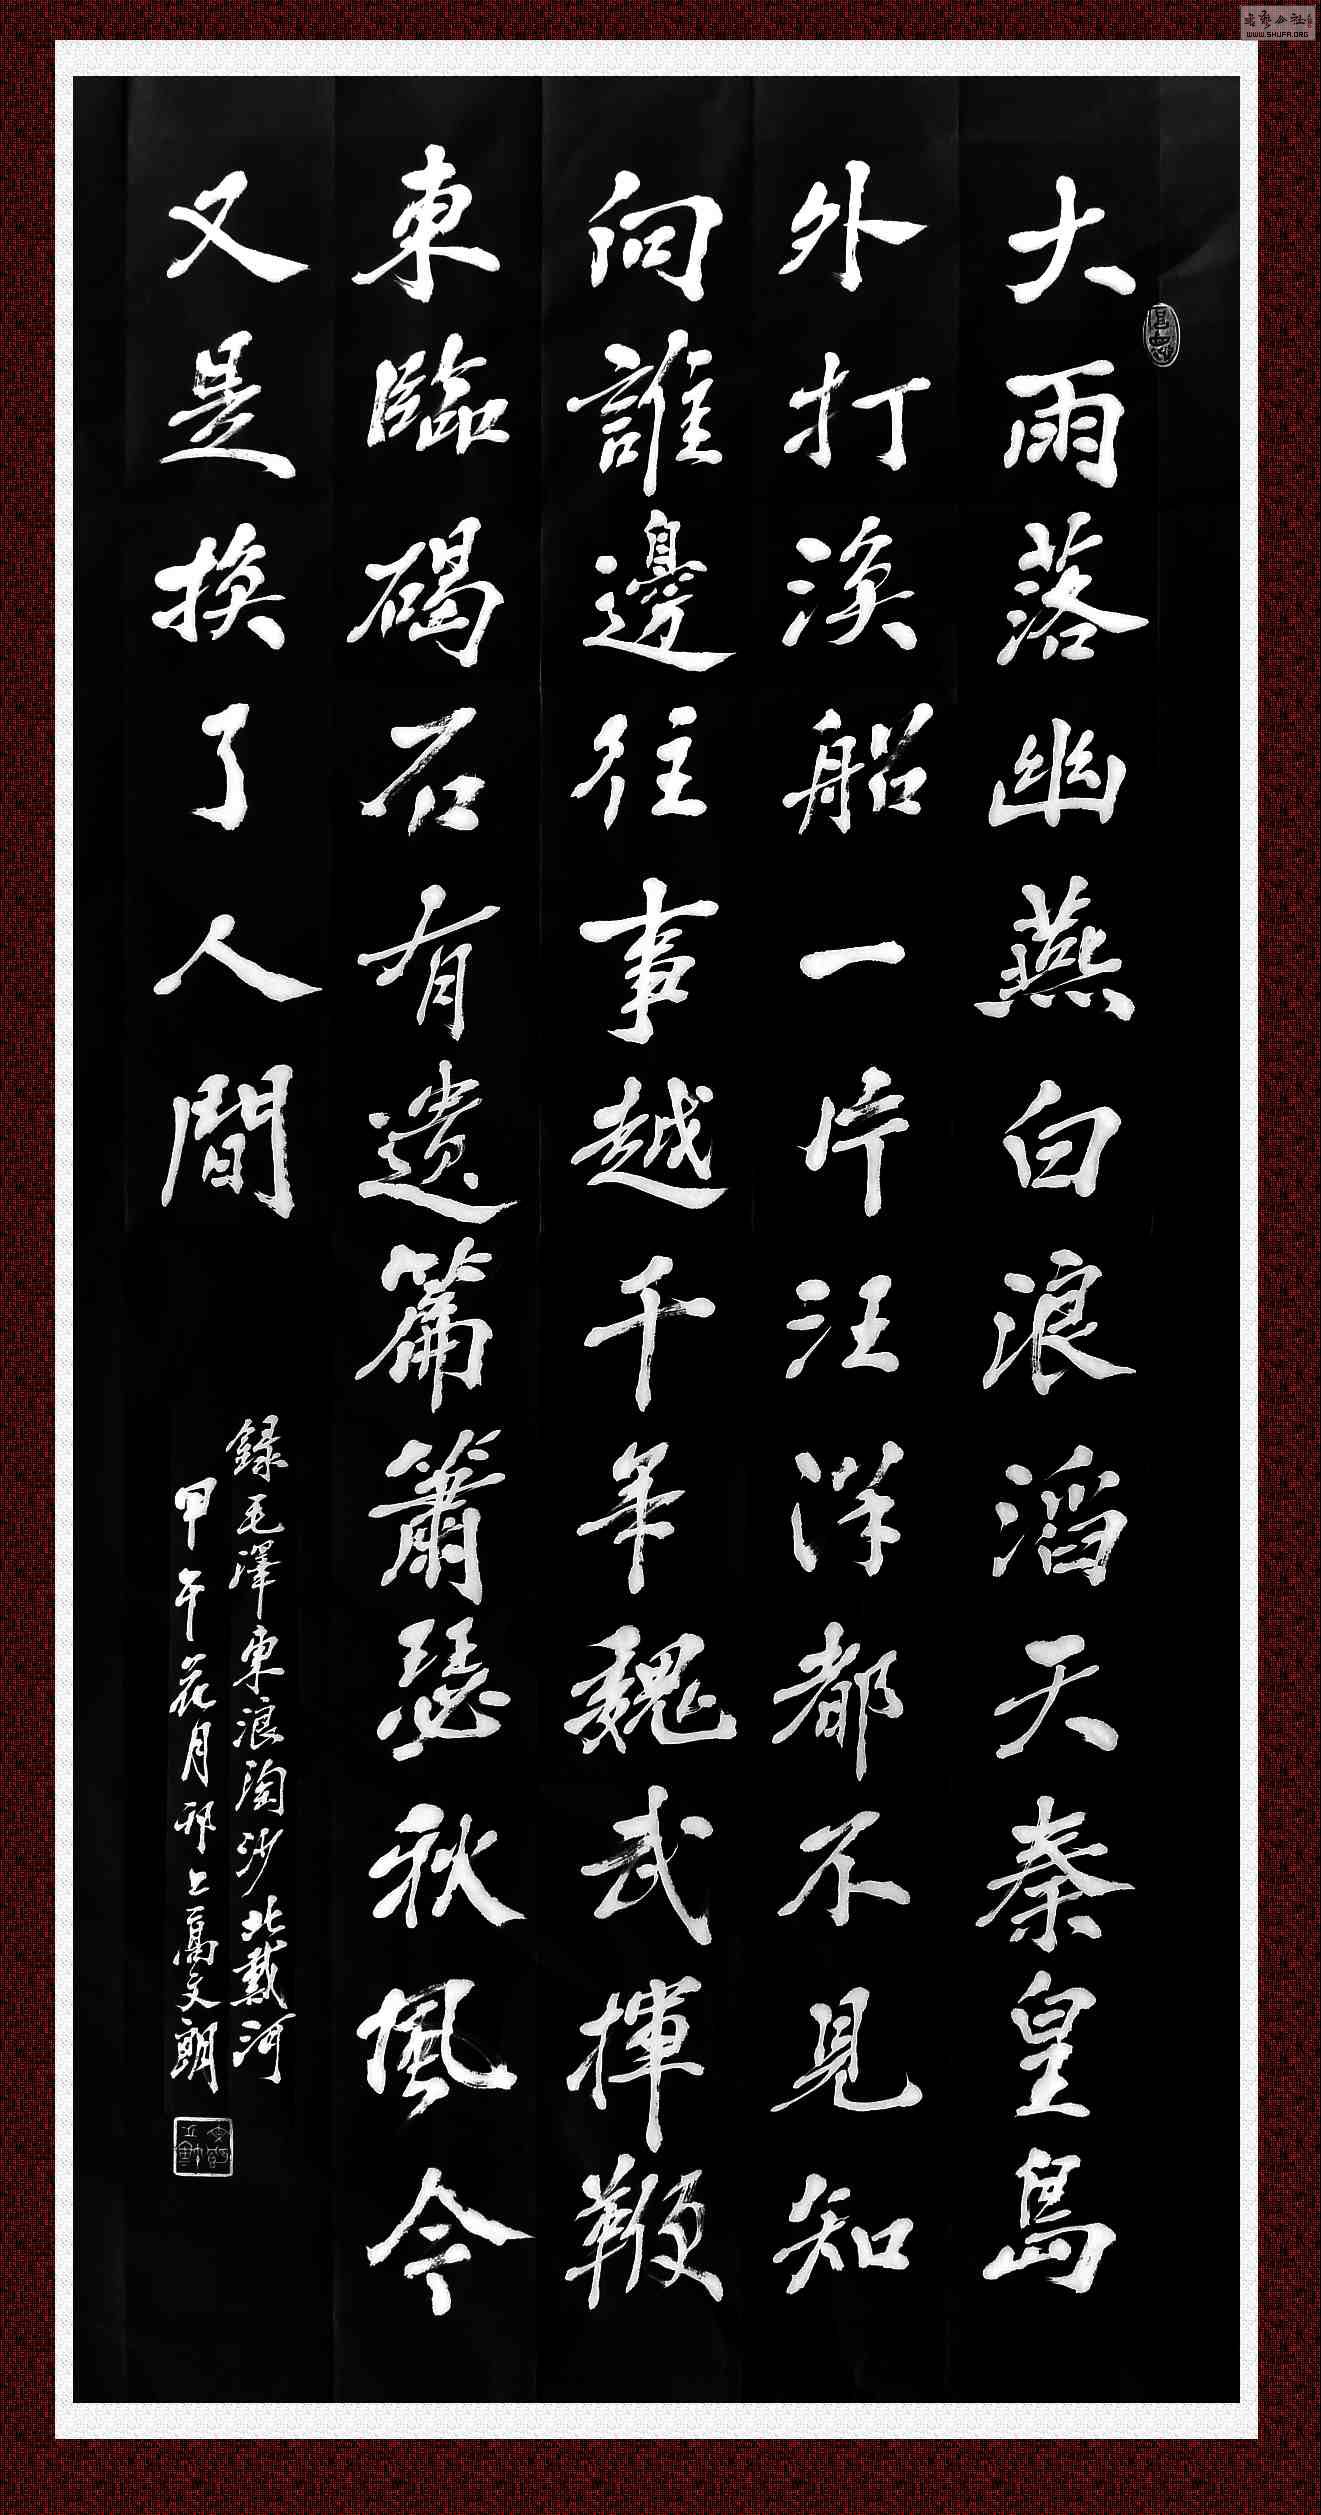 大雨落幽燕白浪滔天秦皇島
外打漁船一片汪洋都不見知
向誰邊往事越千年魏武揮鞭
東臨碣石有遺篇簫瑟秋風今
又是換了人間
錄毛澤東浪淘沙北戴河
甲午花月邗上高文朗
WWW.SHUFA.ORG